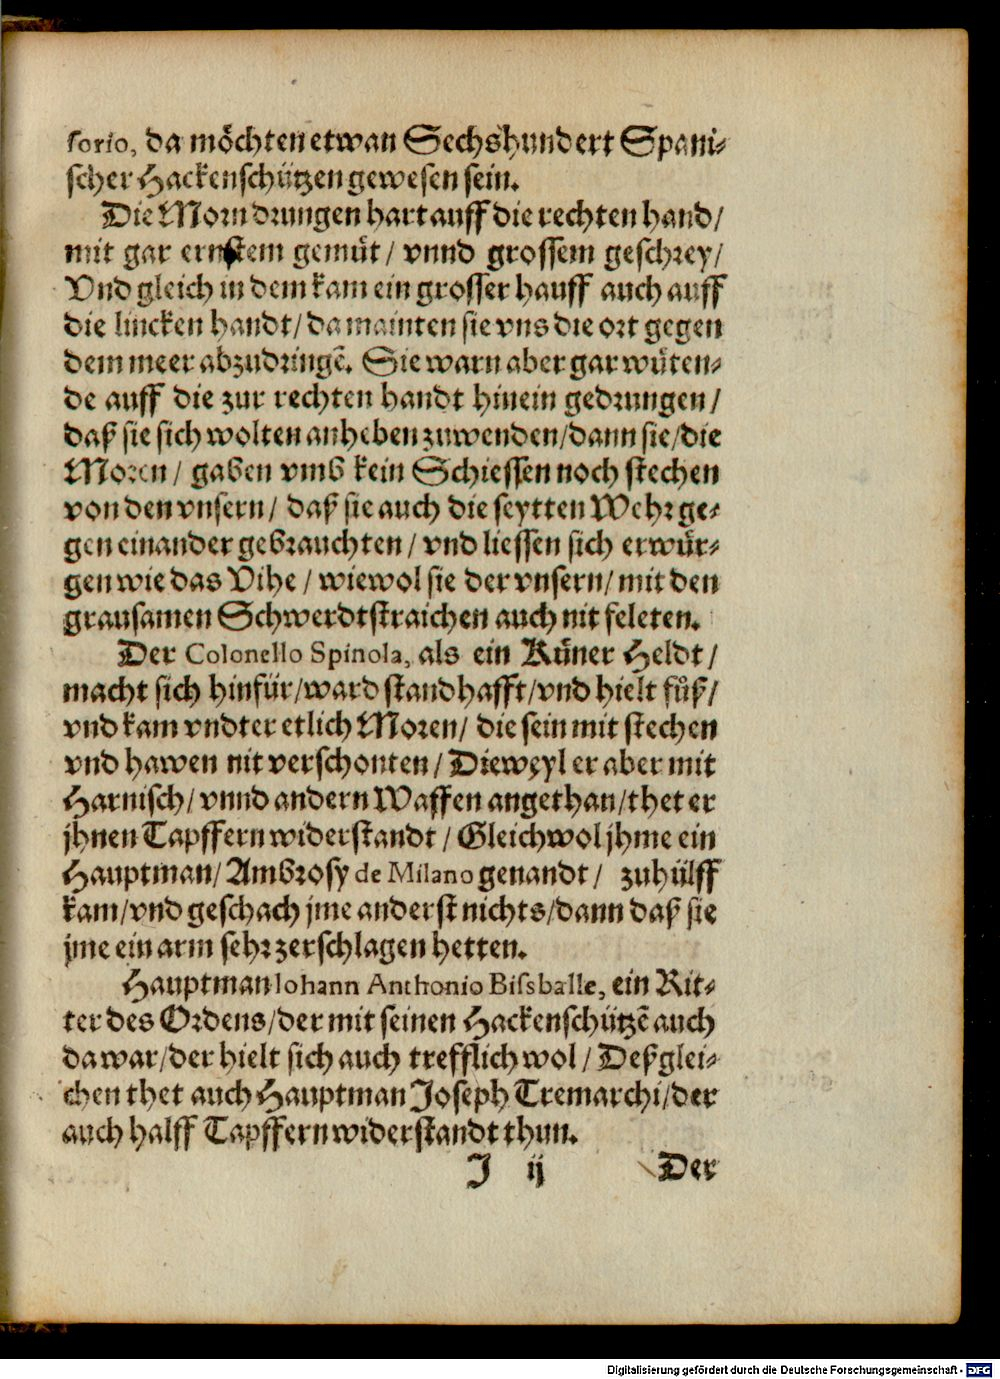 sorio, da möchten etwan Sechshundert Spani⸗
scher Hackenschützen gewesen sein.
Die Morn drungen hart auff die rechten hand/
mit gar ernstem gemüt/ vnnd grossem geschrey/
Vnd gleich in dem kam ein grosser hauff auch auff
die lincken handt/ da mainten sie vns die ort gegen
dem meer abzudringẽ. Sie warn aber gar wüten⸗
de auff die zur rechten handt hinein gedrungen/
daß sie sich wolten anheben zuwenden/ dann sie/ die
Moren/ gaben vmb kein Schiessen noch stechen
von den vnsern/ daß sie auch die seytten Wehr ge⸗
gen einander gebrauchten/ vnd liessen sich erwür⸗
gen wie das Vihe/ wiewol sie der vnsern/ mit den
grausamen Schwerdtstraichen auch nit feleten.
Der Colonello Spinola, als ein Küner Heldt/
macht sich hinfür/ ward standhafft/ vnd hielt fůß/
vnd kam vndter etlich Moren/ die sein mit stechen
vnd hawen nit verschonten/ Dieweyl er aber mit
Harnisch/ vnnd andern Waffen angethan/ thet er
jhnen Tapffern widerstandt/ Gleichwol jhme ein
Hauptman/ Ambrosy de Milano genandt/ zuhülff
kam/ vnd geschach jme anderst nichts/ dann daß sie
jme ein arm sehr zerschlagen hetten.
Hauptman Iohann Anthonio Bissballe, ein Rit⸗
ter des Ordens/ der mit seinen Hackenschützẽ auch
da war/ der hielt sich auch trefflich wol/ Deßglei⸗
chen thet auch Hauptman Joseph Tremarchi/ der
auch halff Tapffern widerstandt thun.
J ij Der
Digitalisierung gefördert durch die Deutsche Forschungsgemeinschaft - DFG